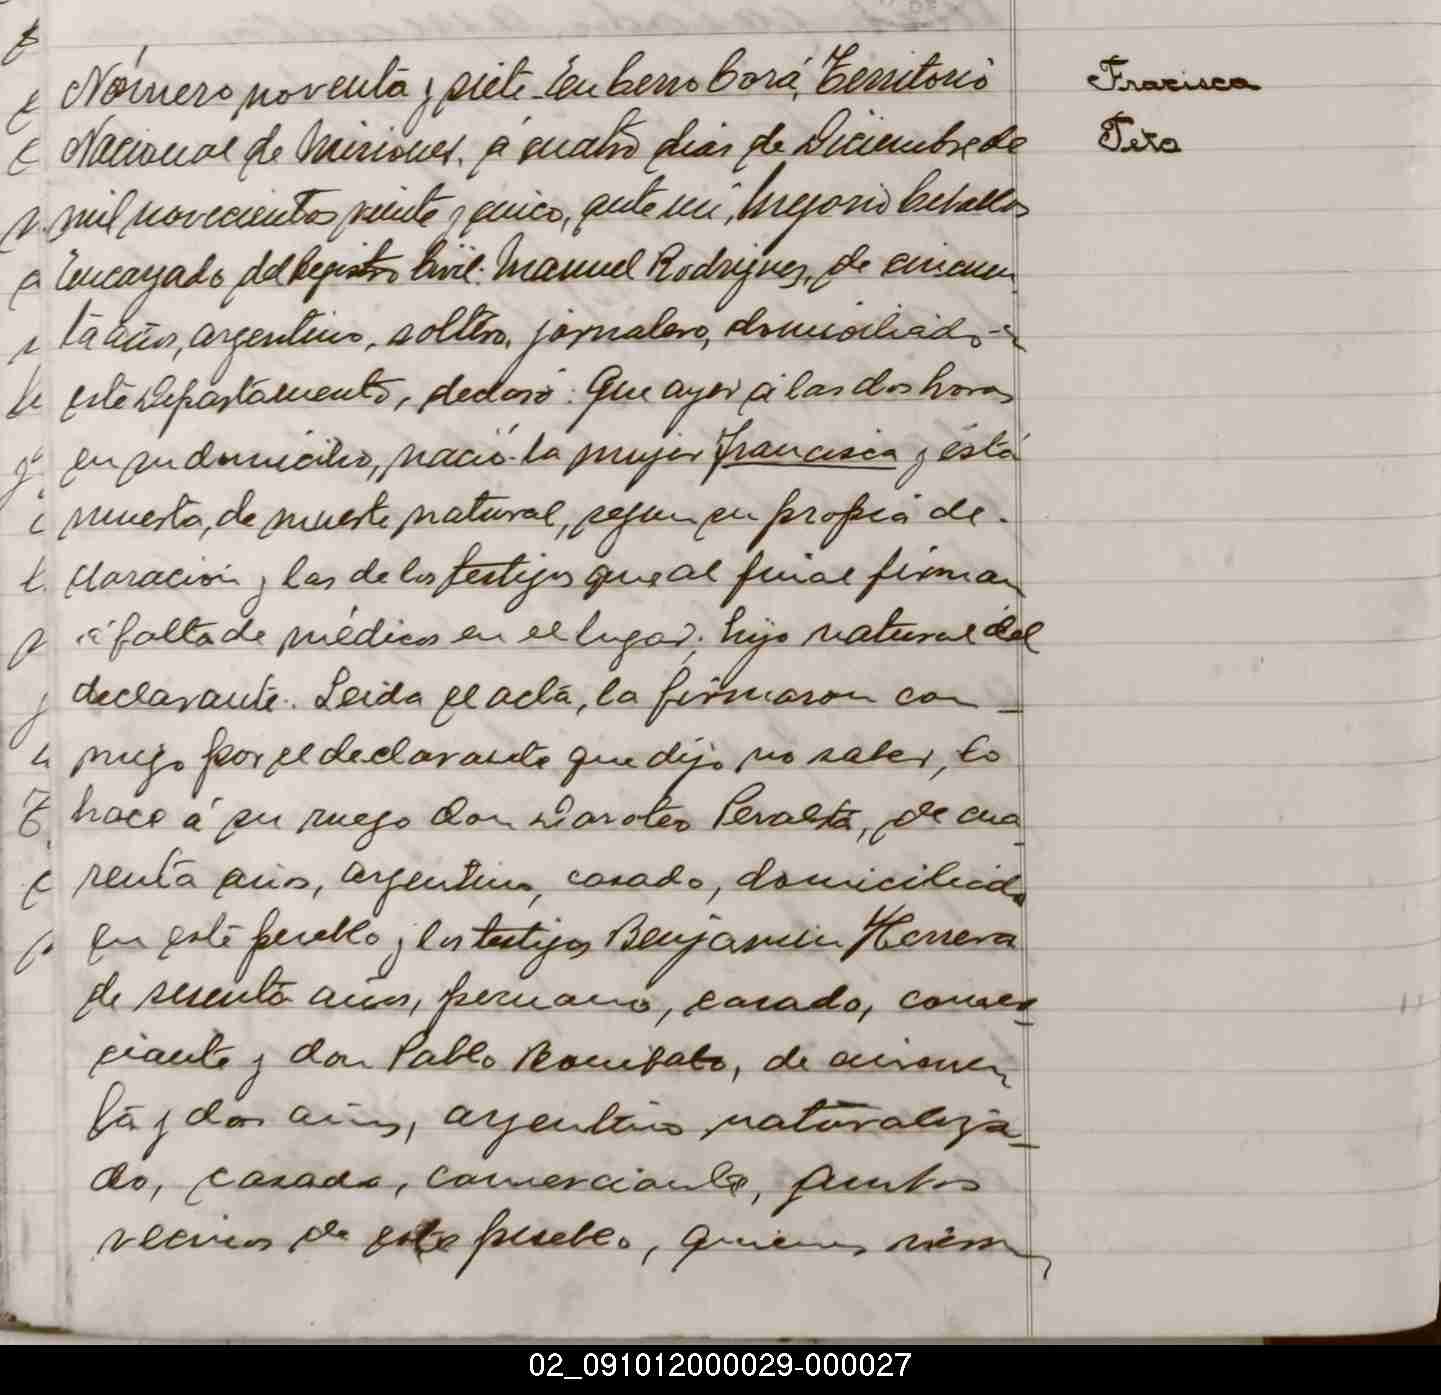 Número noventa y siete. En Cerro Corá, Territorio
Nacional de Misiones, á cuatro dias de Diciembre de
mil novecientos veinte y cinco, ante mí, Gregorio Ceballos
Encargado del Registro Civil: Manuel Rodriguez, de cincuen
ta años, argentino, soltero, jornalero, domiciliado
este Departamento, declaró: Que ayer á las dos horas
en su domicilio, nació la mujer Francisca y está
muerta, de muerte natural, segun su propia de-
claración y las de los testigos que al final firman
á falta de médicos en el lugar; hijo natural del
declarante. Leida el acta, la firmaron con_
migo por el declarante que dijo no saber, lo
hace á su ruego don Doroteo Peralta, de cua_
renta años, argentino, casado, domiciliado
en este pueblo y los testigos Benjamin Herrera
de sesenta años, peruano, casado, comer_
ciante y don Pablo de cincuen
ta y dos años, argentino naturaliza_
do, casado, comerciante, ambos
vecinos de este pueblo, quienes
Fracisca
Feto
02_091012000029-000027